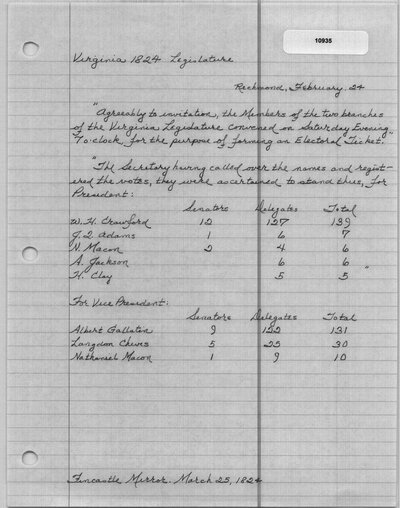 10935
Virginia 1824 Legislature
Richmond, February. 24
"Agreeably to invitation, the Members of the two branches
of the Virginia Legislature convened on Saturday Evening
7 o'clock, for the purpose of forming an Electoral Ticket."
"The Secretary having called over the names and regist-
ered the votes, they were acertained to stand thus, For
President:
Senators Delegates Total
W. H. Crawford 12 127 139
J. Q. Adams 1 6 7
N. Macon 2 4 6
A. Jackson 6 6
H. Clay 5 5 "
For Vice President:
Senators Delegates Total
Albert Gallatin 9 122 131
Langdon Cheves 5 25 30
Nathaniel Macon 1 9 10
Fincastle Mirror. March 25, 1824